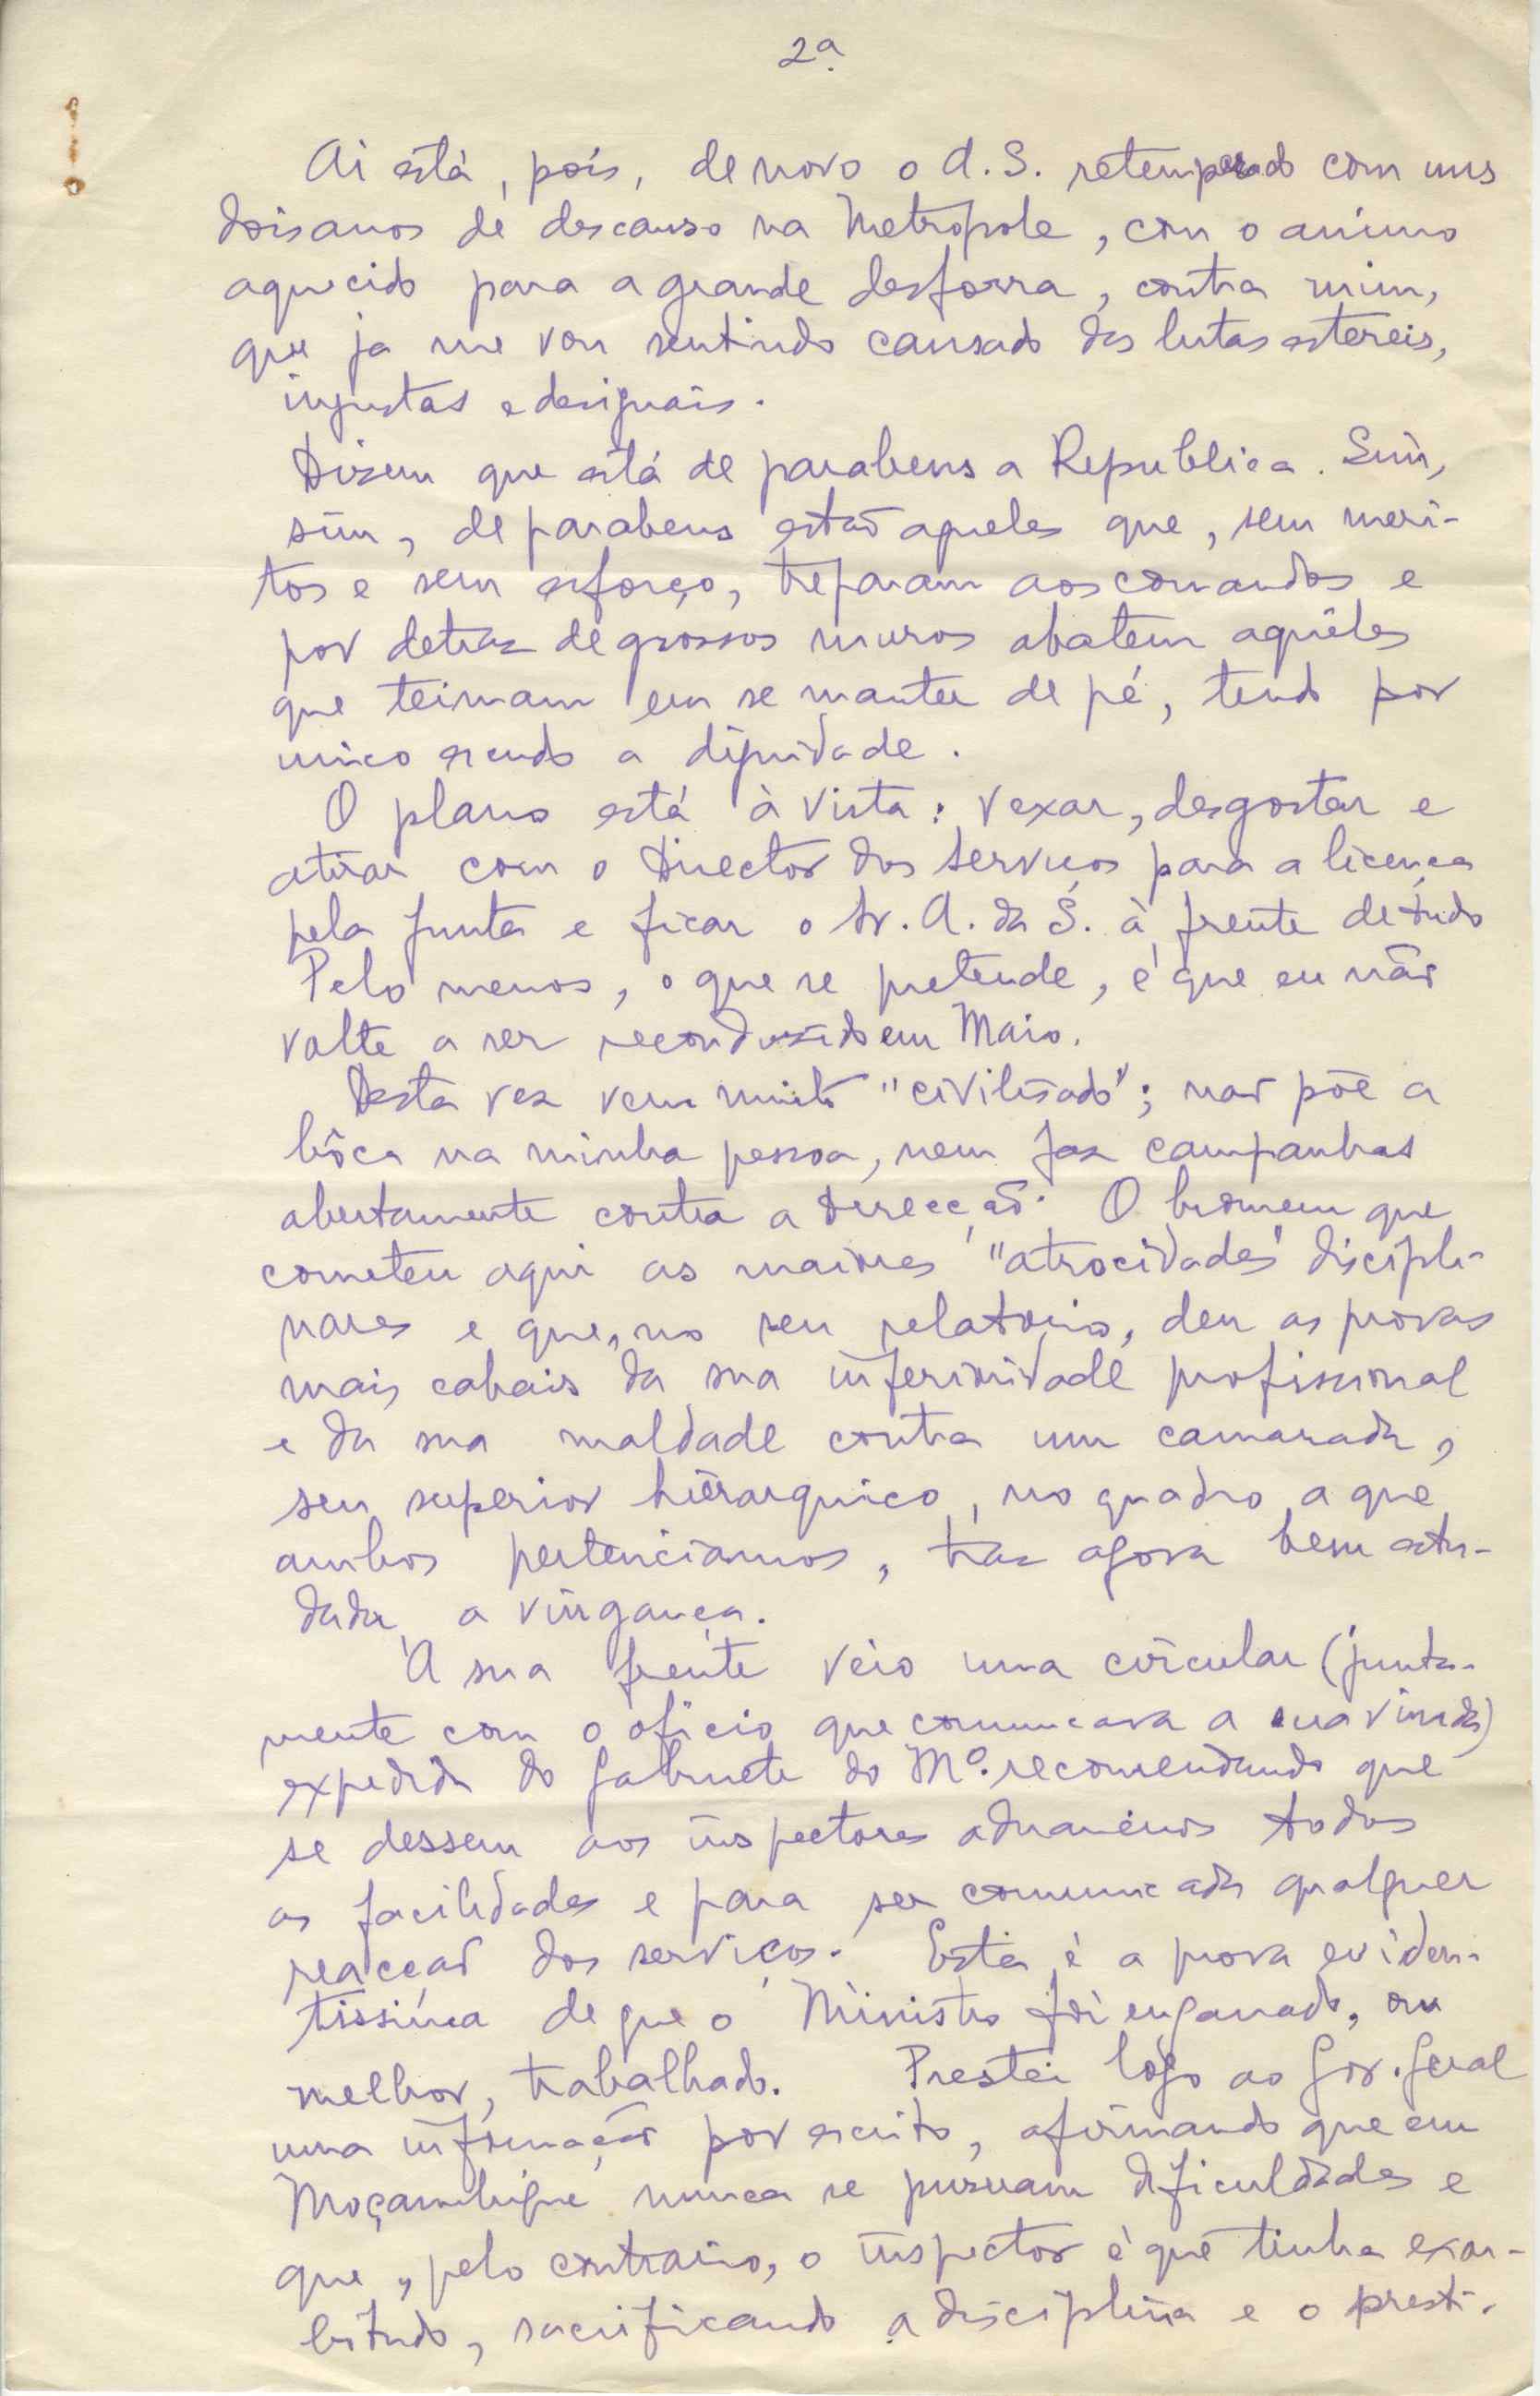 2ª
Ai está, pois, de novo o A. S. retemperado com uns
dois anos de descanso na Metropole, com o animo
aquecido para a grande desforra, contra mim,
que ja me vou sentindo cansado das lutas estereis,
injustas e desiguais.
Dizem que está de parabens a Republica. Sim,
sim, de parabens estão aqueles que, sem meri-
tos e sem esforço, treparam aos comandos e
por detraz de grossos muros abatem aquêles
que teimam em se manter de pé, tendo por
unico escudo a dignidade.
O plano está à vista: vexar, desgostar e
atirar com o Director dos Serviços para a licença
pela Junta e ficar o Sr. A. da S. à frente de tudo
Pelo menos, o que se pretende, é que eu não
volte a ser reconduzido em Maio.
Desta vez vem muito "civilisado"; não põe a
bôca na minha pessoa, nem faz campanhas
abertamente contra a Direcção. O homem que
cometeu aqui as maiores "atrocidades" discipli-
nares e que, no seu relatorio, deu as provas
mais cabais da sua inferioridade profissional
e da sua maldade contra um camarada,
seu superior hierarquico, no quadro a que
ambos pertenciamos, traz agora bem estu-
dada a vingança.
À sua frente veio uma circular (junta-
mente com o oficio que comunicava a sua vinda)
expedida do Gabinete do Mº. recomendando que
se dessem aos inspectores aduaneiros todas
as facilidades e para ser comunicada qualquer
reacção dos serviços. Esta é a prova eviden-
tissima de que o Ministro foi enganado, ou
melhor, trabalhado. Prestei logo ao Gov. Geral
uma informação por escrito, afirmando que em
Moçambique nunca se puseram dificuldades e
que, pelo contrario, o inspector é que tinha exor-
bitado, sacrificando a disciplina e o presti-